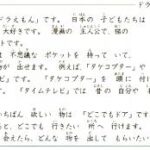 ドラ
ドラえもん」です。 日本の 子どもたちは
大好きです。 漫画の 主人公で、 猫の
ットです。
不思議な ポケットを 持って いて、
が 出せます。 例えば、「タケコプター」や
ビ」です。「タケコプター」を 頭に 付
ます。「タイムテレビ」では 昔の 自分や
ちばん 欲しい 物は 「どこでもドア」です
ると、 どこでも 行きたい 所へ 行けます。
会えたら、どんな 物を 出して もらいたい